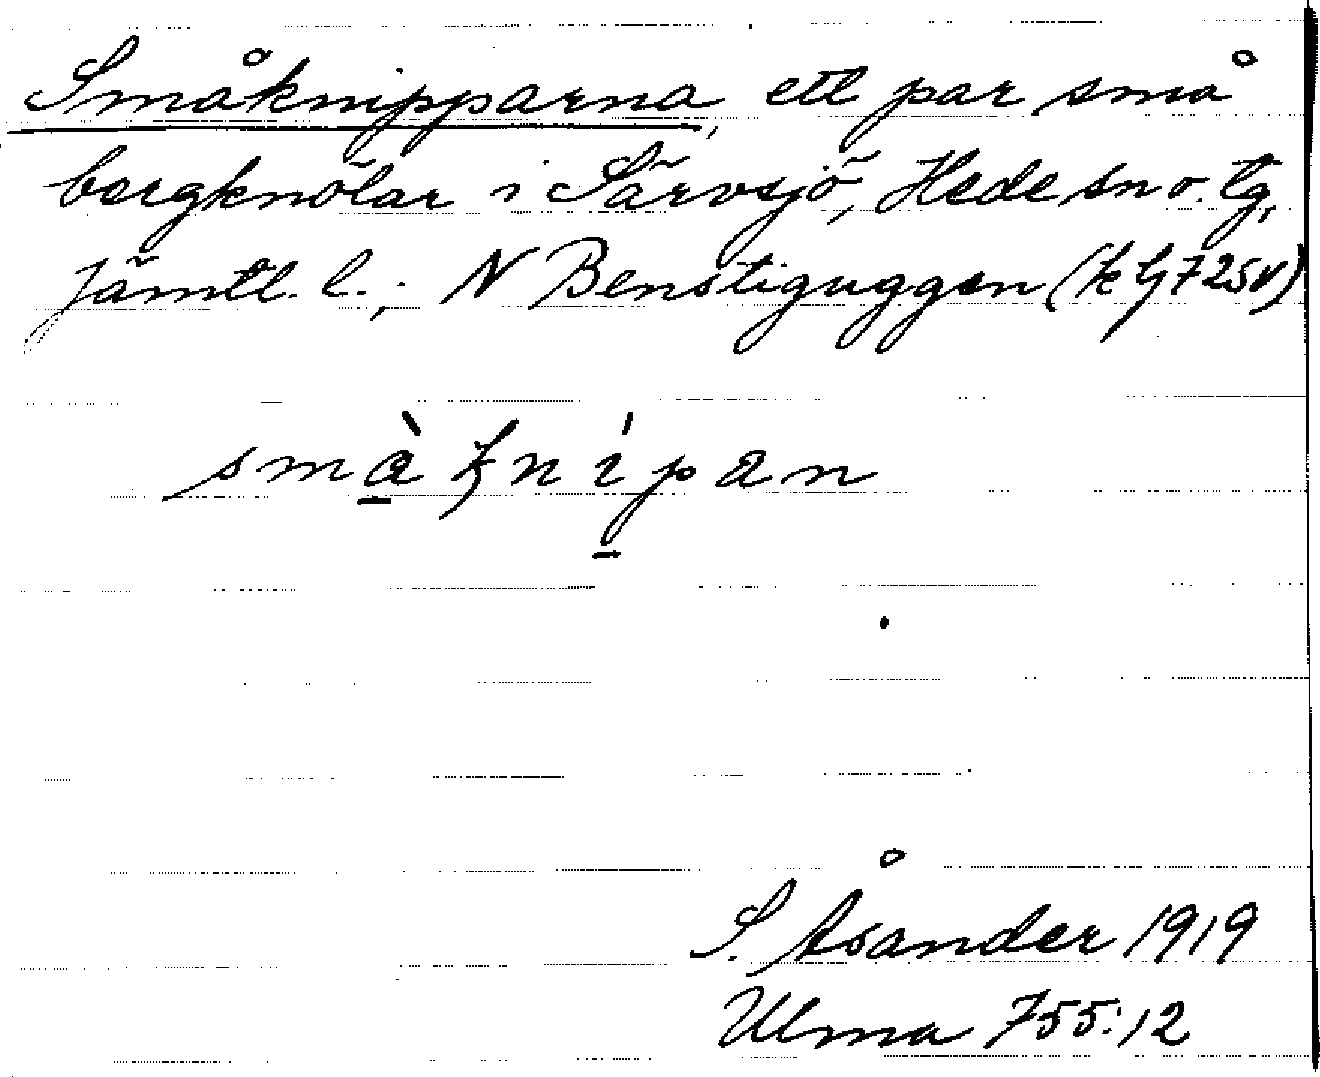 Småknipparna, ett par små
bergknölar i Särvsjö, Hede sn o. tg,
Jämtl. l.; N Benstiguggen
smàk̨nípan
S. Åsander 1919
Ulma 755:12